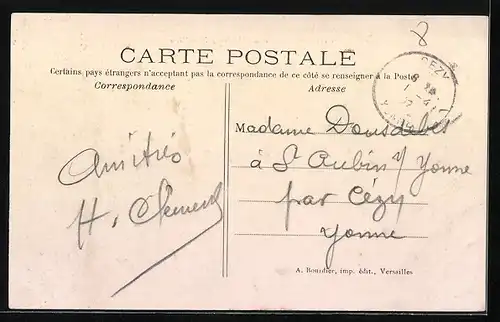 8
CARTE POSTALE
Certains pays étrangers n'acceptant pas la correspondance de ce côté se renseigner à la Poste
Correspondance
Adresse
CÉZY
Amitiés
H. Clement
Madame
à St Aubin s/ Yonne
par Cézy
Yonne
A. Bourdier, imp. édit., Versailles